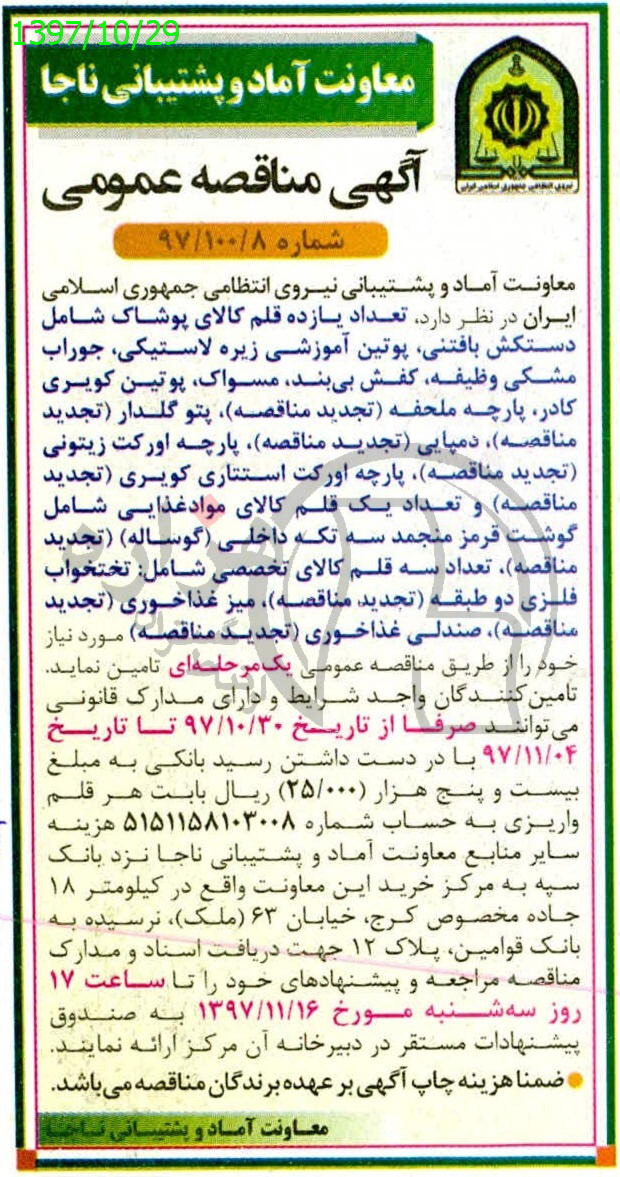 1397/10/29
معاونت آماد و پشتیبانی ناجا
نیروی انتظامی جمهوری اسلامی ایران
آگهی مناقصه عمومی
شماره ۹۷/۱۰۰/۸
معاونت آماد و پشتیبانی نیروی انتظامی جمهوری اسلامی
ایران در نظر دارد، تعداد یازده قلم کالای پوشاک شامل
دستکش بافتنی، پوتین آموزشی زیره لاستیکی، جوراب
مشکی وظیفه، کفش بی‌بند، مسواک، پوتین کویری
کادر، پارچه ملحفه (تجدید مناقصه)، پتو گلدار (تجدید
مناقصه)، دمپایی (تجدید مناقصه)، پارچه اورکت زیتونی
(تجدید مناقصه)، پارچه اورکت استتاری کویری (تجدید
مناقصه) و تعداد یک قلم کالای موادغذایی شامل
گوشت قرمز منجمد سه تکه داخلی (گوساله) (تجدید
مناقصه)، تعداد سه قلم کالای تخصصی شامل: تختخواب
فلزی دو طبقه (تجدید مناقصه)، میز غذاخوری (تجدید
مناقصه)، صندلی غذاخوری (تجدید مناقصه) مورد نیاز
خود را از طریق مناقصه عمومی یک‌مرحله‌ای تامین نماید.
تامین‌کنندگان واجد شرایط و دارای مدارک قانونی
می‌توانند صرفا از تاریخ ۹۷/۱۰/۳۰ تا تاریخ
۹۷/۱۱/۰۴ با در دست داشتن رسید بانکی به مبلغ
بیست و پنج هزار (۲۵/۰۰۰) ریال بابت هر قلم
واریزی به حساب شماره ۵۱۵۱۱۵۸۱۰۳۰۰۸ هزینه
سایر منابع معاونت آماد و پشتیبانی ناجا نزد بانک
سپه به مرکز خرید این معاونت واقع در کیلومتر ۱۸
جاده مخصوص کرج، خیابان ۶۳ (ملک)، نرسیده به
بانک قوامین، پلاک ۱۲ جهت دریافت اسناد و مدارک
مناقصه مراجعه و پیشنهادهای خود را تا ساعت ۱۷
روز سه‌شنبه مورخ ۱۳۹۷/۱۱/۱۶ به صندوق
پیشنهادات مستقر در دبیرخانه آن مرکز ارائه نمایند.
● ضمنا هزینه چاپ آگهی بر عهده برندگان مناقصه می‌باشد.
معاونت آماد و پشتیبانی ناجا